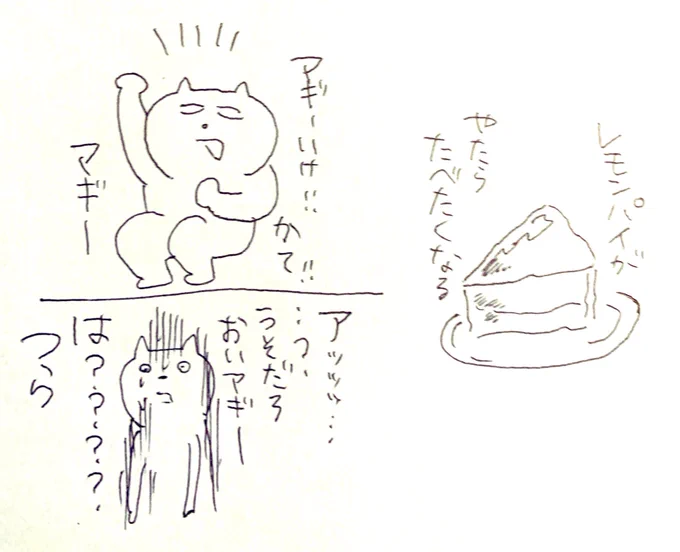 レモンパイが
やたら
たべたくなる
マギーいけ!!
かて!!
マギー
アッッッ…
…っ、
うそだろ
おいマギー
は????
つら